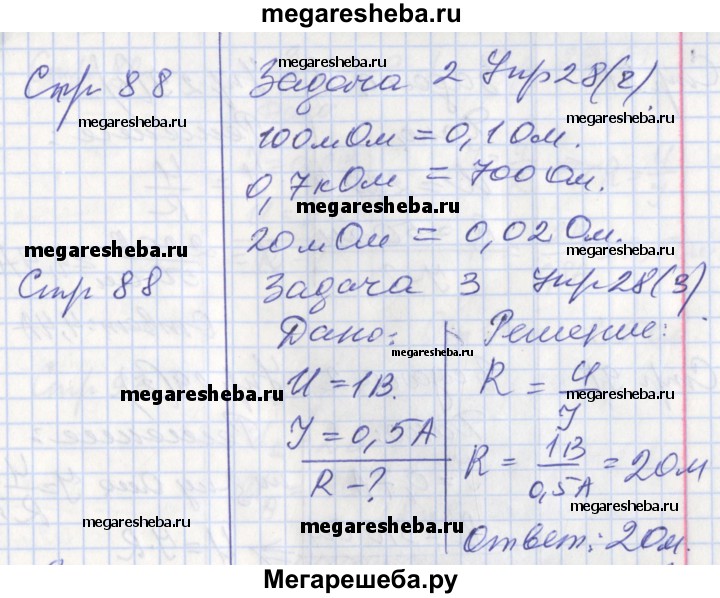 megaresheba.ru
Стр 88 Задача 2 Упр 28(2)
megaresheba.ru
megaresheba.ru
megaresheba.ru
100мОм = 0,1 Ом.
megaresheba.ru
0,7кОм = 700 Ом.
megaresheba.ru
20мОм = 0,02 Ом.
megaresheba.ru
megaresheba.ru
Стр 88 Задача 3 Упр 28(3)
Дано: Решение:
megaresheba.ru
U = 1В. R = U/I
megaresheba.ru
megaresheba.ru
I = 0,5А
R = 1В/0,5А = 2Ом
R - ?
megaresheba.ru
megaresheba.ru
megaresheba.ru
Ответ: 2Ом.
Мегарешеба.ру